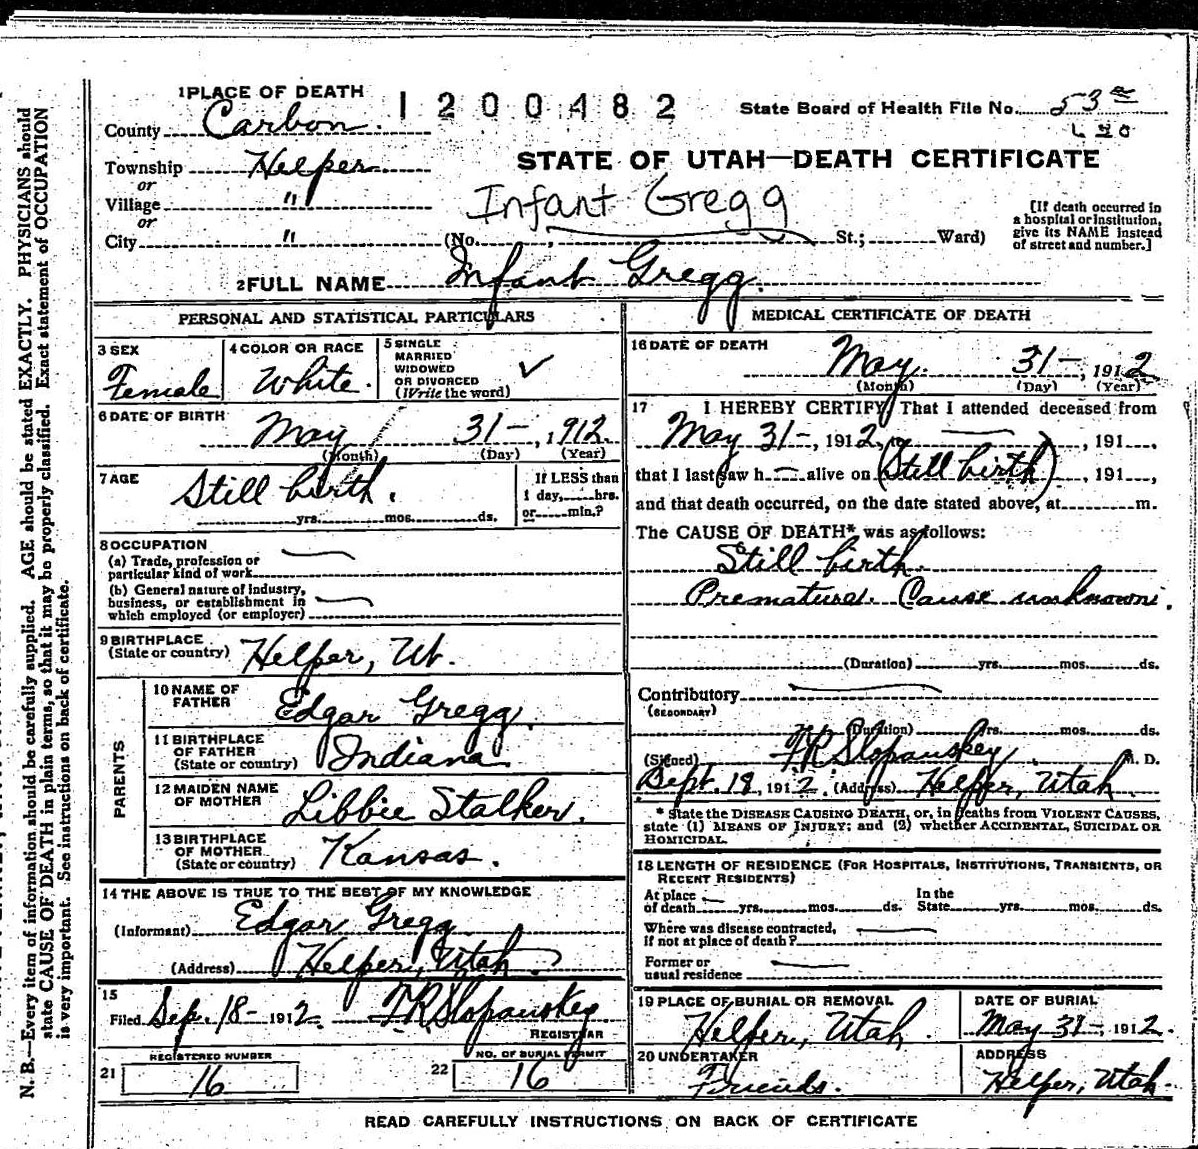 1 PLACE OF DEATH
1 2 0 0 4 8 2
State Board of Health File No. 53
County Carbon.
Township Helper
or
Village "
or
City "
STATE OF UTAH—DEATH CERTIFICATE
Infant Gregg
(No. , St.; Ward)
[If death occurred in
a hospital or institution,
give its NAME instead
of street and number.]
2 FULL NAME Infant Gregg.
PERSONAL AND STATISTICAL PARTICULARS
3 SEX
Female
4 COLOR OR RACE
White.
5 SINGLE
MARRIED
WIDOWED
OR DIVORCED
(Write the word)
✓
6 DATE OF BIRTH
May 31 – , 1912.
(Month) (Day) (Year)
7 AGE
Still birth.
yrs. mos. ds.
If LESS than
1 day, hrs.
or min.?
8 OCCUPATION
(a) Trade, profession or
particular kind of work
(b) General nature of industry,
business, or establishment in
which employed (or employer)
9 BIRTHPLACE
(State or country) Helper, Ut.
PARENTS
10 NAME OF
FATHER
Edgar Gregg.
11 BIRTHPLACE
OF FATHER
(State or country) Indiana
12 MAIDEN NAME
OF MOTHER
Libbie Stalker.
13 BIRTHPLACE
OF MOTHER
(State or country) Kansas.
14 THE ABOVE IS TRUE TO THE BEST OF MY KNOWLEDGE
(Informant) Edgar Gregg
(Address) Helper, Utah
15
Filed Sep. 18 – 1912. F R Slopanskey
REGISTRAR
REGISTERED NUMBER
21 16
NO. OF BURIAL PERMIT
22 16
MEDICAL CERTIFICATE OF DEATH
16 DATE OF DEATH
May. 31 – , 1912
(Month) (Day) (Year)
17 I HEREBY CERTIFY, That I attended deceased from
May 31 – , 1912, to , 191 ,
that I last saw h — alive on (Still birth) , 191 ,
and that death occurred, on the date stated above, at m.
The CAUSE OF DEATH* was as follows:
Still birth.
Premature. Cause unknown.
(Duration) yrs. mos. ds.
Contributory
(SECONDARY)
(Duration) yrs. mos. ds.
(Signed) F R Slopanskey, M. D.
Sept. 18, 1912. (Address) Helper, Utah.
* State the DISEASE CAUSING DEATH, or, in deaths from VIOLENT CAUSES,
state (1) MEANS OF INJURY; and (2) whether ACCIDENTAL, SUICIDAL OR
HOMICIDAL.
18 LENGTH OF RESIDENCE (FOR HOSPITALS, INSTITUTIONS, TRANSIENTS, OR
RECENT RESIDENTS)
At place
of death yrs. mos. ds.
In the
State yrs. mos. ds.
Where was disease contracted,
if not at place of death?
Former or
usual residence
19 PLACE OF BURIAL OR REMOVAL
Helper, Utah.
DATE OF BURIAL
May 31 – , 1912.
20 UNDERTAKER
Friends.
ADDRESS
Helper, Utah.
READ CAREFULLY INSTRUCTIONS ON BACK OF CERTIFICATE
N. B.—Every item of information should be carefully supplied. AGE should be stated EXACTLY. PHYSICIANS should
state CAUSE OF DEATH in plain terms, so that it may be properly classified. Exact statement of OCCUPATION
is very important. See instructions on back of certificate.